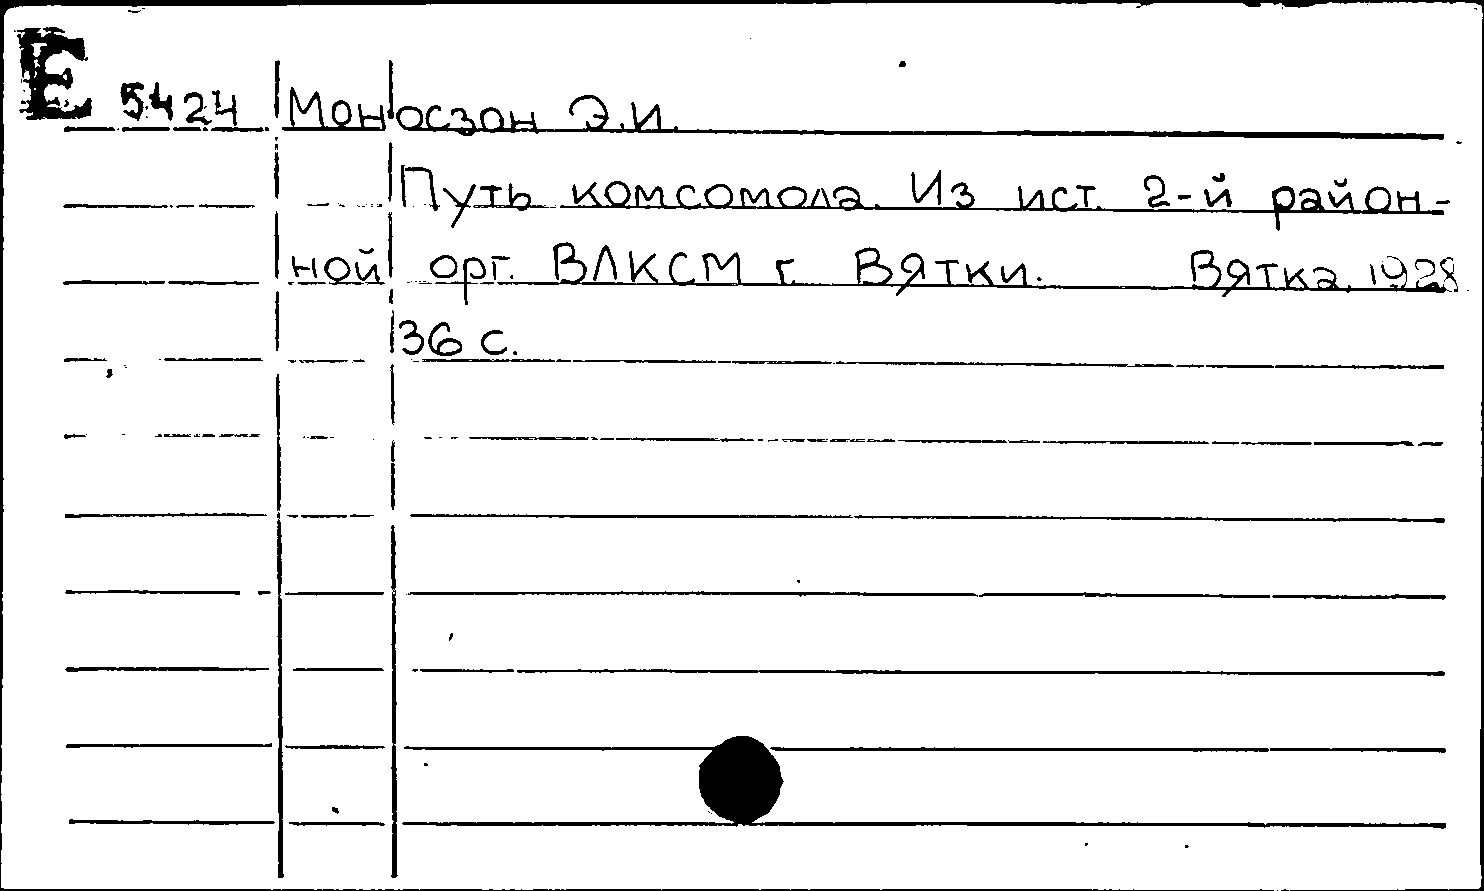 Е 5424 Моносзон Э.И.
Путь комсомола. Из ист. 2-й район-
ной орг. ВЛКСМ г. Вятки. Вятка, 1928
36 с.